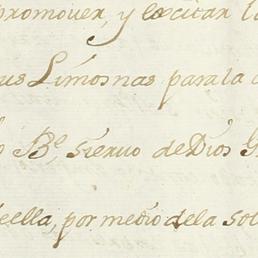 promouer, y excitar l
us Limosnas para la
o Be, sieruo de Dios G
ella, por medio de la sol